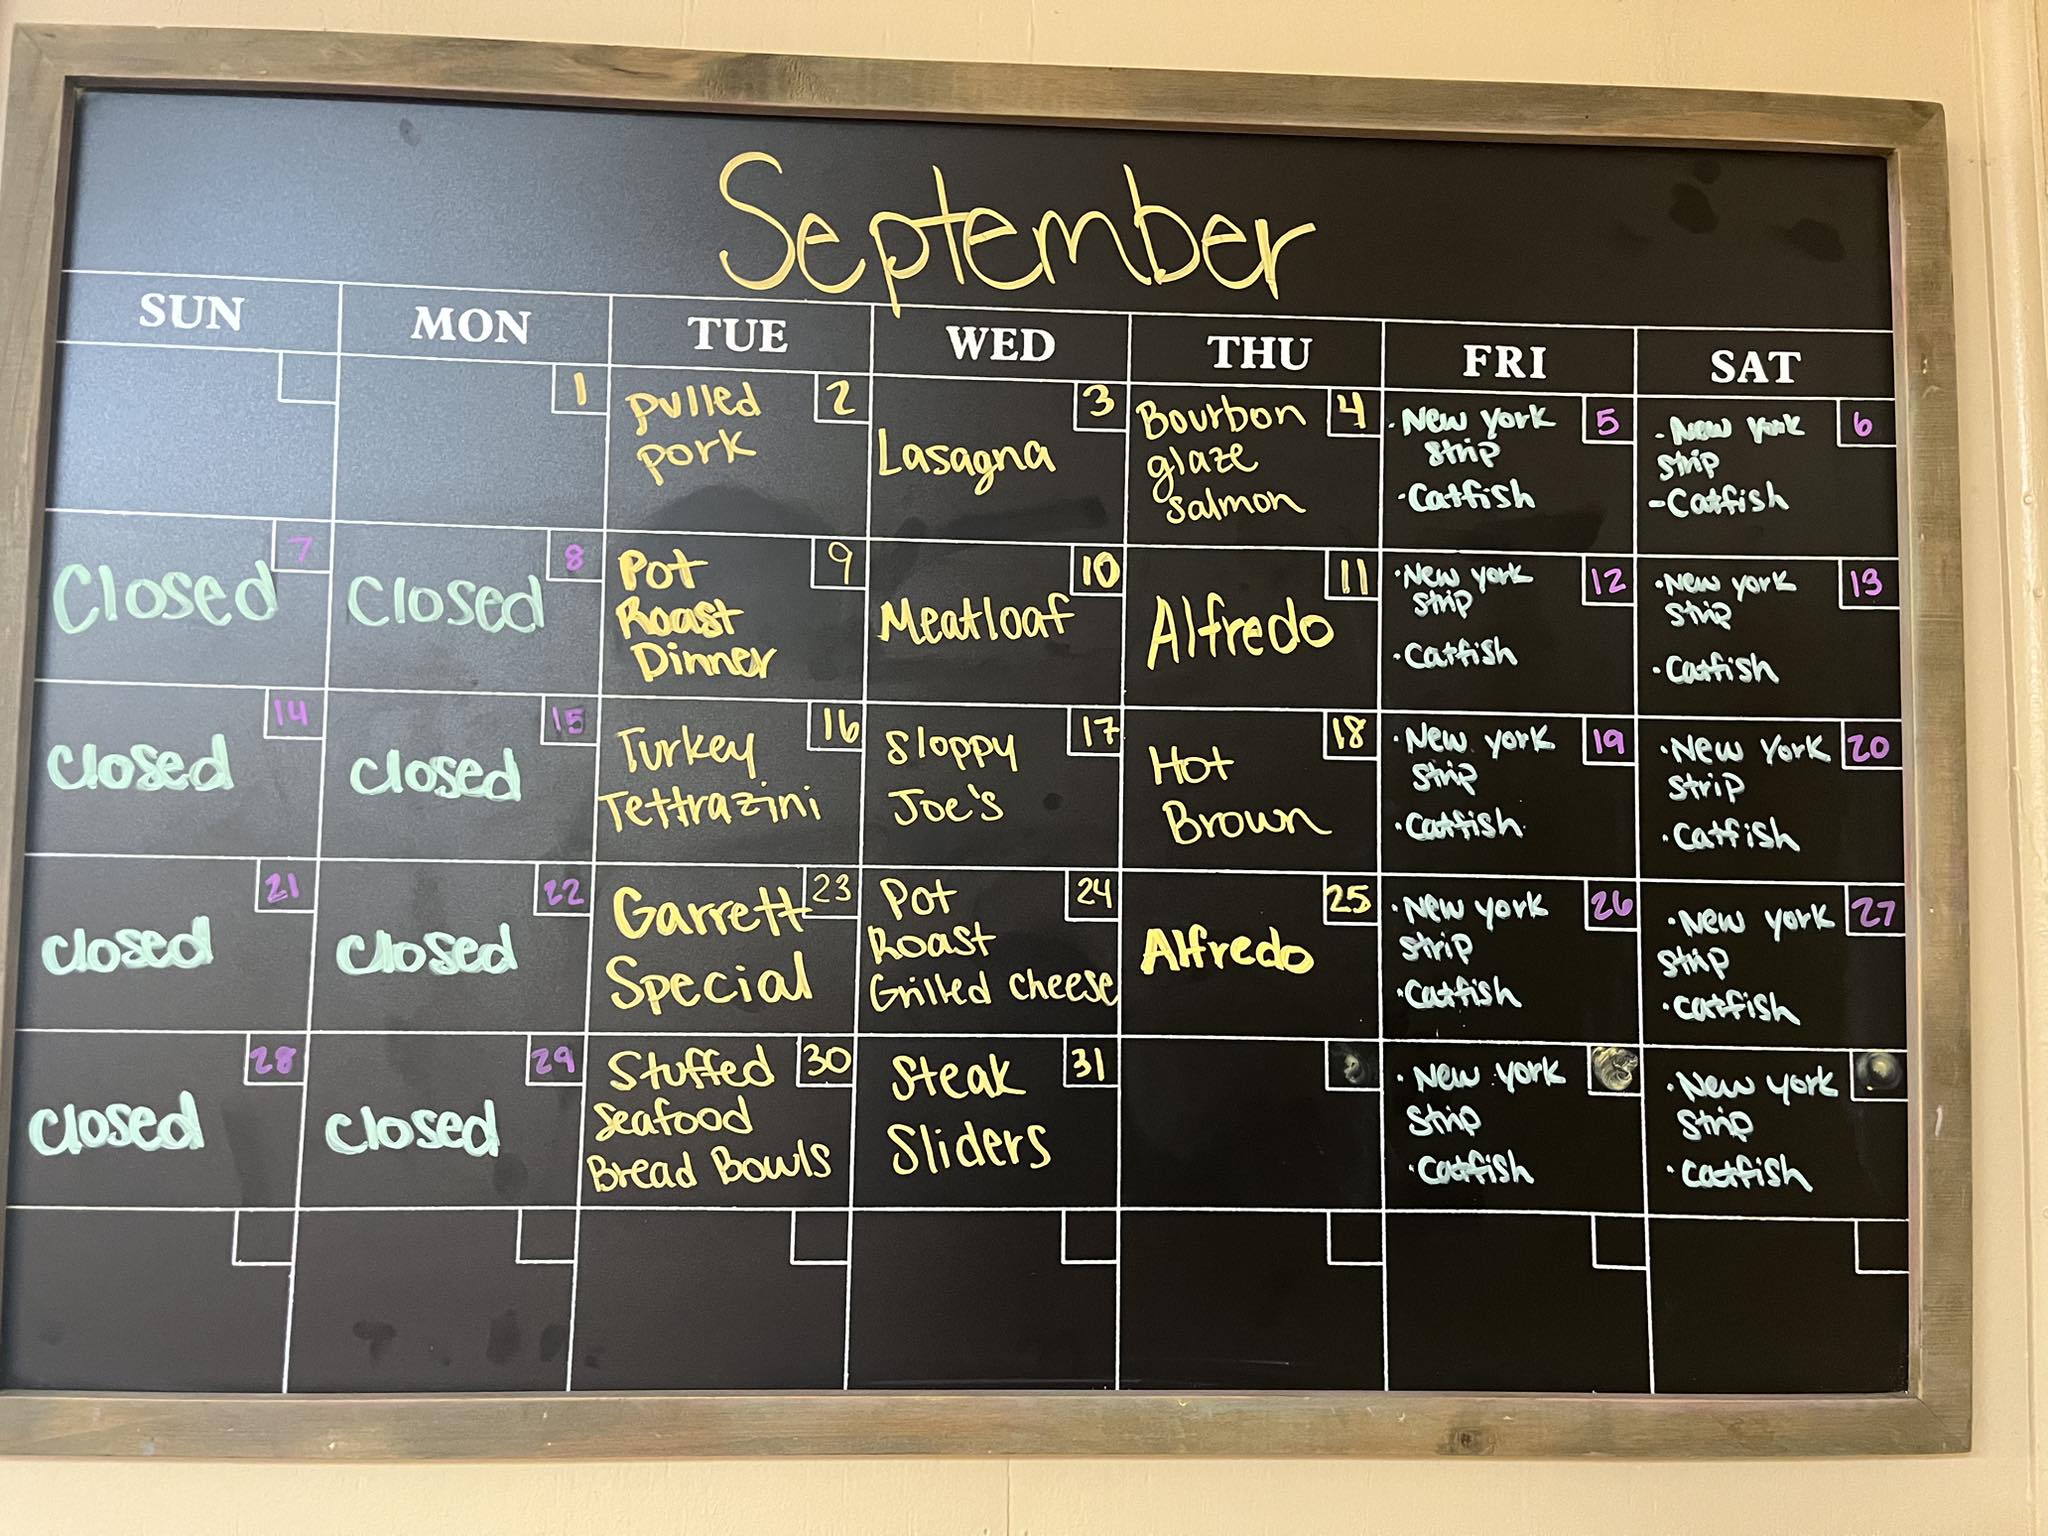 September
SUN MON TUE WED THU FRI SAT
1
pulled
pork
2
Lasagna
3
Bourbon
glaze
salmon
4
·New york
strip
·Catfish
5
·New york
strip
-Catfish
6
Closed
7
Closed
8
Pot
Roast
Dinner
9
Meatloaf
10
Alfredo
11
·New york
strip
·Catfish
12
·New york
strip
·Catfish
13
Closed
14
Closed
15
Turkey
Tettrazini
16
Sloppy
Joe's
17
Hot
Brown
18
·New york
strip
·Catfish
19
·New York
strip
·Catfish
20
Closed
21
Closed
22
Garrett
Special
23
Pot
Roast
Grilled cheese
24
Alfredo
25
·New york
strip
·Catfish
26
·New york
strip
·Catfish
27
Closed
28
Closed
29
Stuffed
Seafood
Bread Bowls
30
Steak
Sliders
31
·New york
strip
·Catfish
·New york
strip
·Catfish